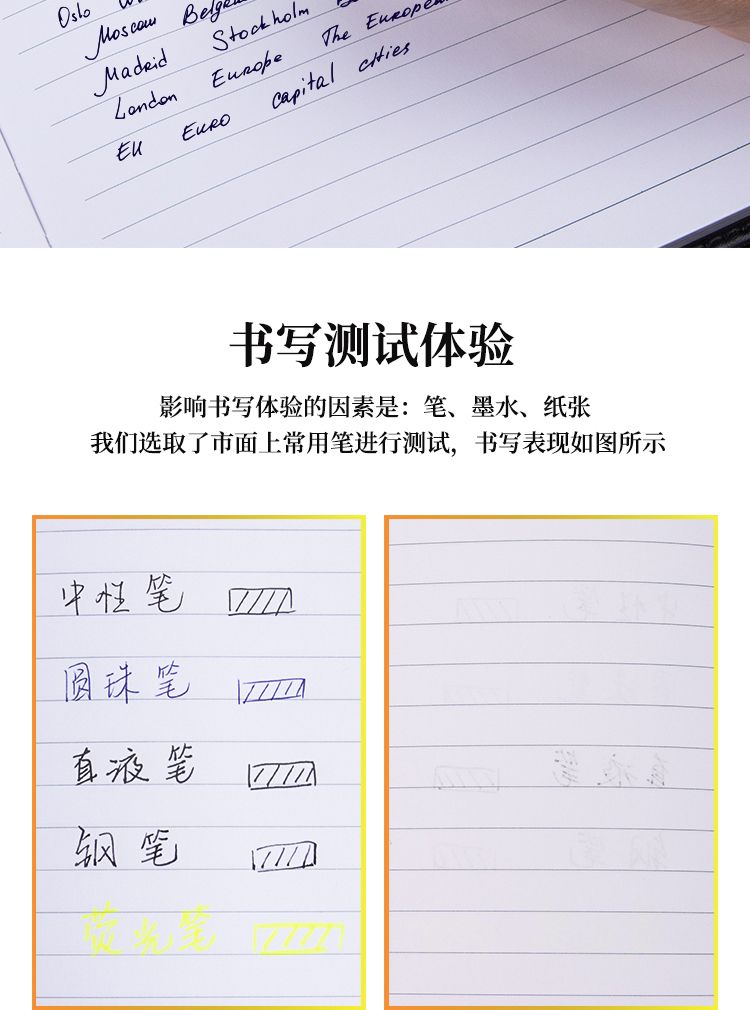 Oslo
Moscow Belgrade
Madrid Stockholm
London Europe The European
EU EURO capital cities
书写测试体验
影响书写体验的因素是：笔、墨水、纸张
我们选取了市面上常用笔进行测试，书写表现如图所示
中性笔
圆珠笔
直液笔
钢笔
荧光笔